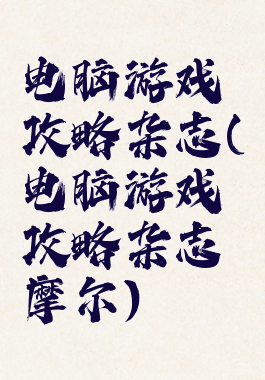 电脑游戏
攻略杂志(
电脑游戏
攻略杂志
摩尔)